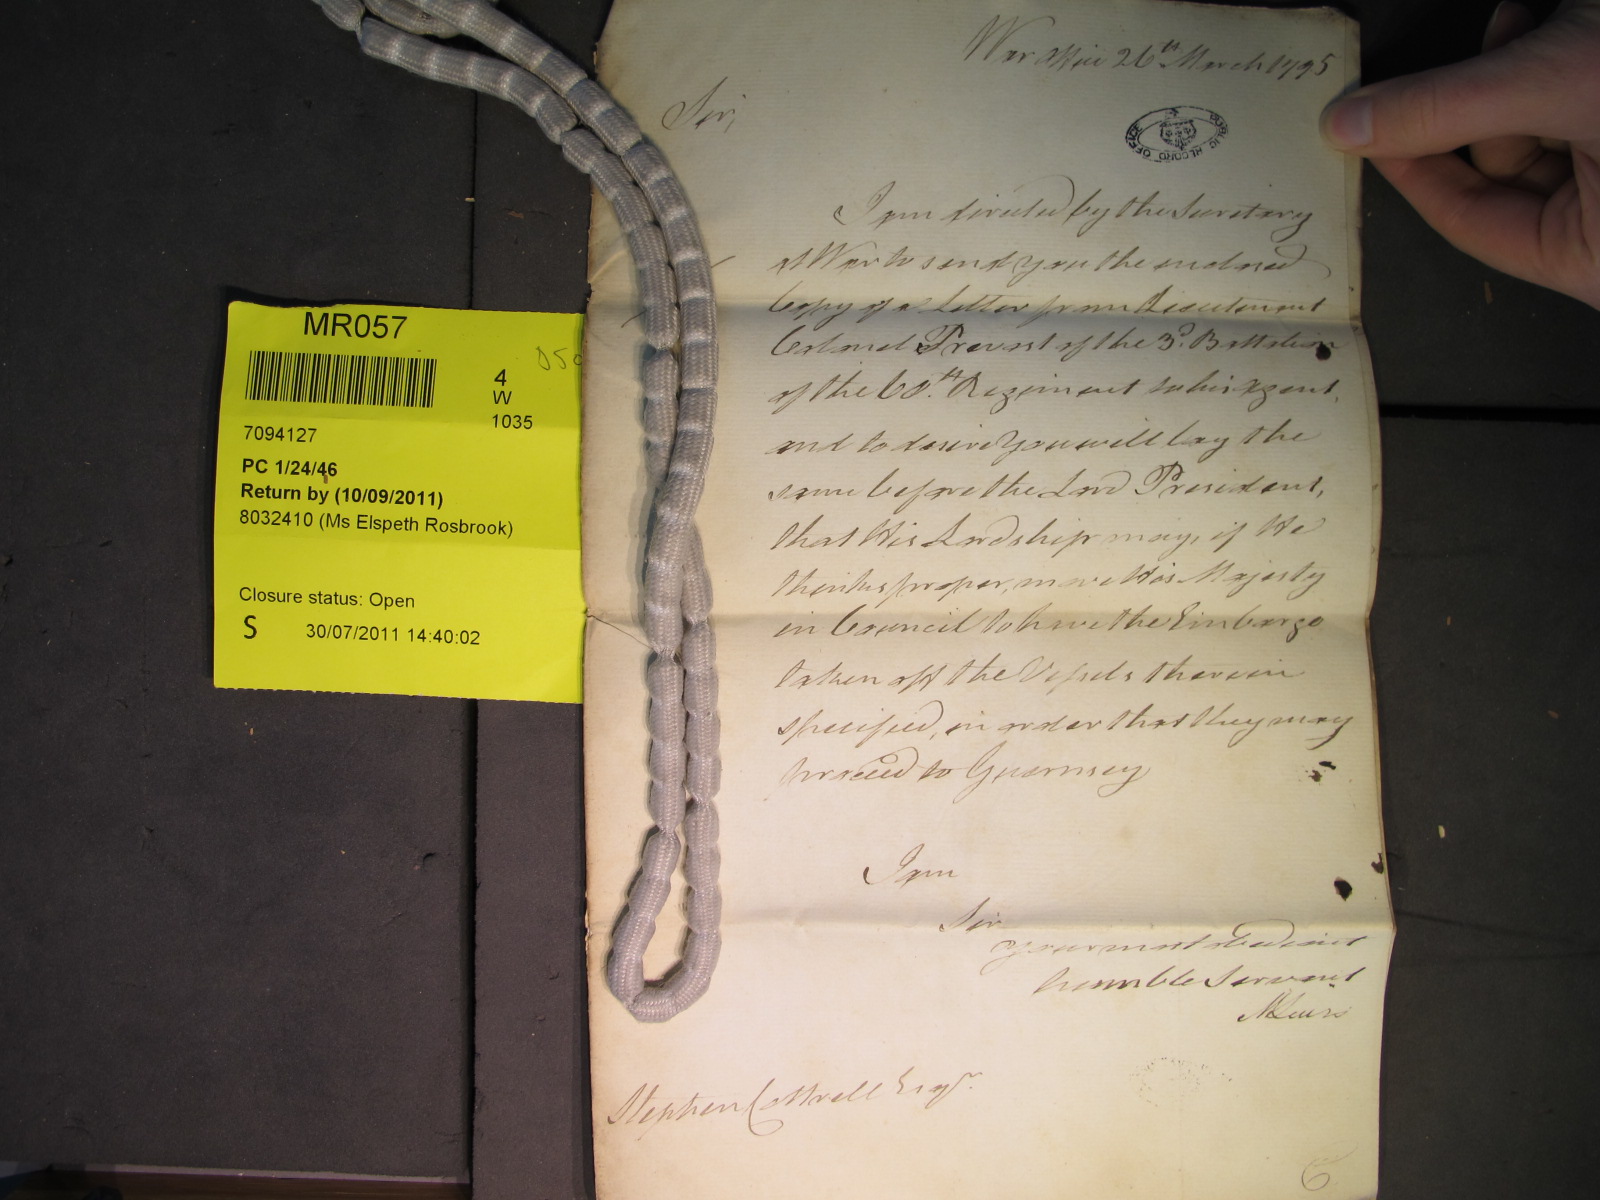 MR057
4
W
1035
7094127
PC 1/24/46
Return by (10/09/2011)
8032410 (Ms Elspeth Rosbrook)
Closure status: Open
S 30/07/2011 14:40:02
War Office 26th March 1795
Sir,
PUBLIC RECORD OFFICE
I am directed by the Secretary
at War to send you the enclosed
Copy of a Letter from Lieutenant
Colonel Prevost of the 3d. Battalion
of the 60th. Regiment
and to desire You will lay the
same before the Lord President,
that His Lordship may, if He
thinks proper, move His Majesty
in Council to have the Embargo
taken off the Vessels therein
specified, in order that they may
proceed to Guernsey
I am
Sir
your most obedient
humble Servant
MLewis
Stephen Cottrell Esqr.